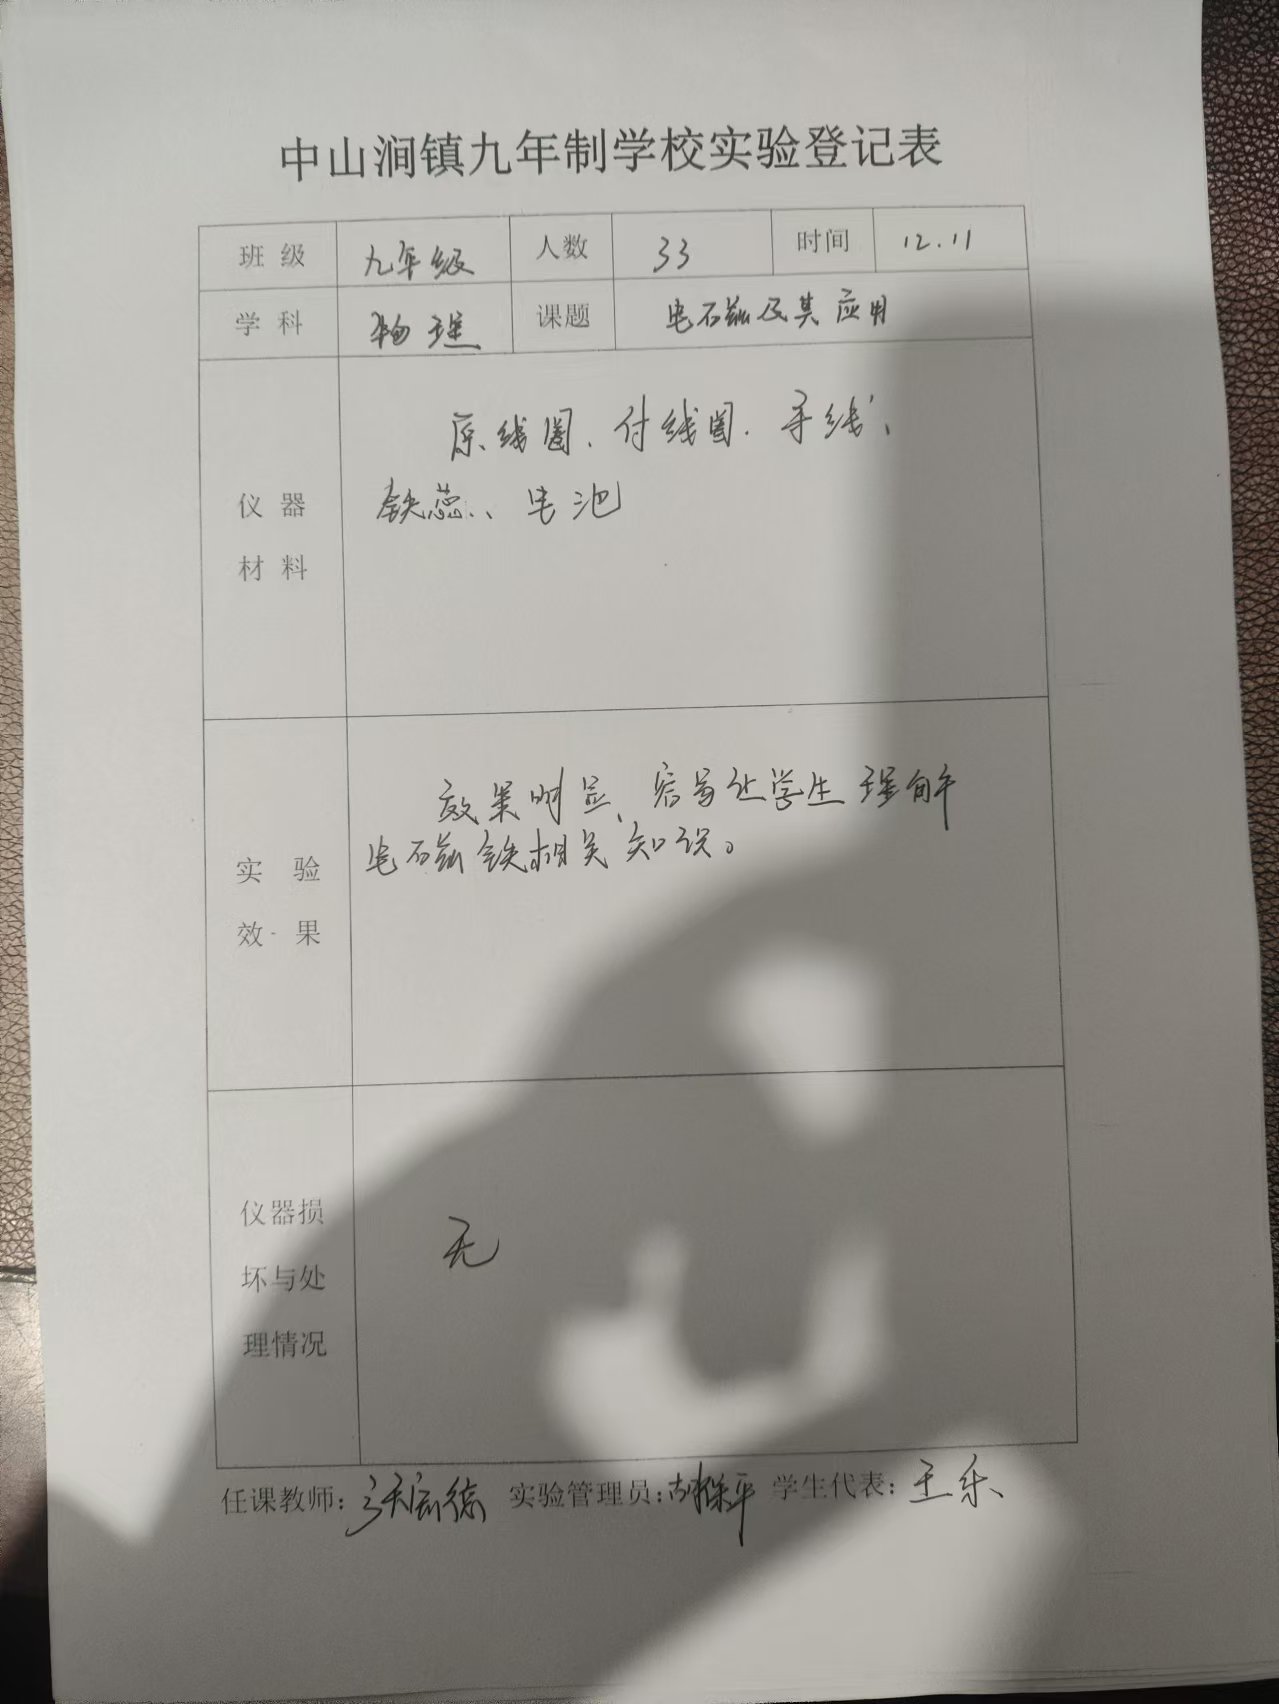 中山涧镇九年制学校实验登记表
班级 九年级 人数 33 时间 12.11
学科 物理 课题 电磁及其应用
仪器材料
原线圈、付线圈、导线、
铁蕊、电池
实验效果
效果明显、容易让学生理解
电磁铁相关知识。
仪器损坏与处理情况
无
任课教师: 实验管理员: 学生代表: 王乐